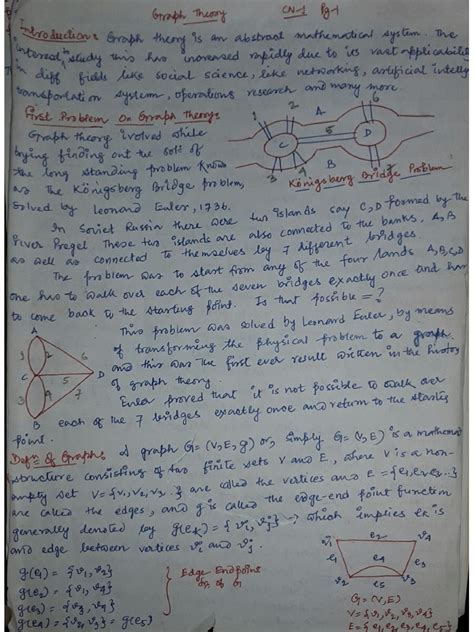 Graph Theory CN-1 Pg-1
Introduction: Graph theory is an abstract mathematical system. The
interest in study this has increased rapidly due to its vast applicability
in diff fields like social science, like networking, artificial intelly
transportation system, operations research and many more.
First Problem on Graph Theory:
Graph theory evolved while
trying finding out the soln of
the long standing problem know
as the Königsberg Bridge problem,
solved by Leonard Euler, 1736.
1 2 A 6
C 5 D
3 4 B 7
Königsberg Bridge Problem
In Soviet Russia there were two islands say C, D formed by the
river Pregel. These two islands are also connected to the banks A, B
as well as connected to themselves by 7 different bridges.
The problem was to start from any of the four lands A, B, C, D
one has to walk over each of the seven bridges exactly once and
to come back to the starting point. Is that possible = ?
A
1 2 6
C 5 D
3 4 7
B
This problem was solved by Leonard Euler, by means
of transforming the physical problem to a graph
and this was the first ever result written in the history
of graph theory.
Euler proved that it is not possible to walk over
each of the 7 bridges exactly once and return to the starting
point.
Defn of Graphs A graph G = (V, E, g) or, simply G = (V, E) is a mathema
structure consisting of two finite sets V and E, where V is a non-
empty set V = {v1, v2, v3 ..} are called the vertices and E = {e1, e2, e3 ...}
are called the edges, and g is called the edge-end point function
generally denoted by g(ek) = {vi, vj} → which implies ek is
and edge between vertices vi and vj.
g(e1) = {v1, v2}
g(e2) = {v1, v4}
g(e3) = {v3, v4}
g(e4) = {v2, v3} = g(e5)
Edge Endpoint
of G
v1 e2 v4
e1 e4 e3
v2 e5 v3
G = (V, E)
V = {v1, v2, v3, v4}
E = {e1, e2, e3, e4,